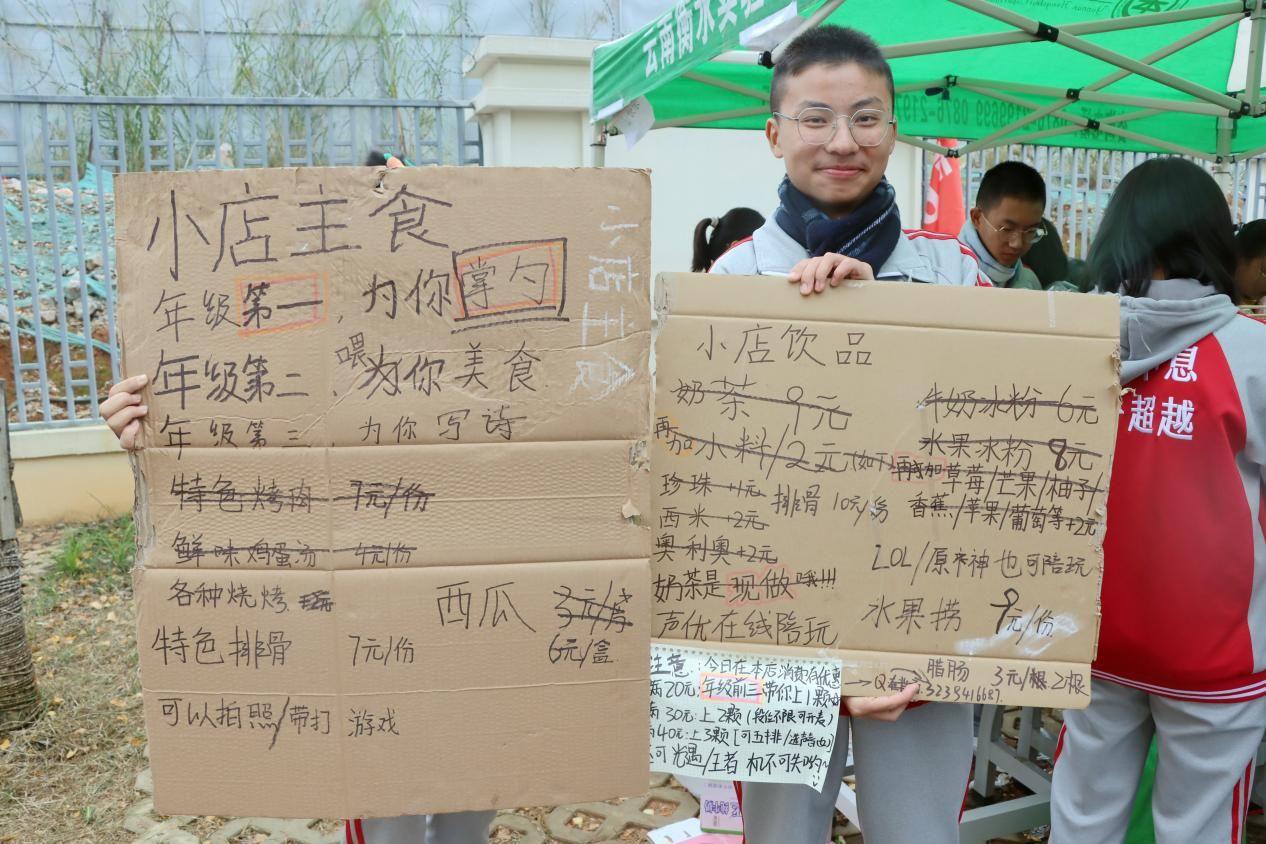 云南衡水实验
0876-2198699 0876-2197
小店主食
小店主食
年级第一，为你掌勺
年级第二，喂为你美食
年级第三，为你写诗
特色烤肉 7元/份
鲜味鸡蛋汤 4元/份
各种烧烤
西瓜 3元/
6元/盒
特色排骨 7元/份
可以拍照/带打游戏
小店饮品
奶茶 9元
牛奶冰粉 6元
再加水料/2元(如下)
水果冰粉 8元
再加草莓/芒果/柚子/
香蕉/苹果/葡萄等+2元
珍珠+1元 排骨 10元/份
西米+2元
奥利奥+2元
LOL/原神也可陪玩
奶茶是现做哦!!!
水果捞 9元/份
声优在线陪玩
腊肠 3元/根 2根
注意：今日在本店消费有优惠
满20元：年级前三带你上1颗
满30元：上2颗(段位不限可开麦)
40元：上3颗[可五排/
还可光遇/王者 机不可失哟~
息
超越